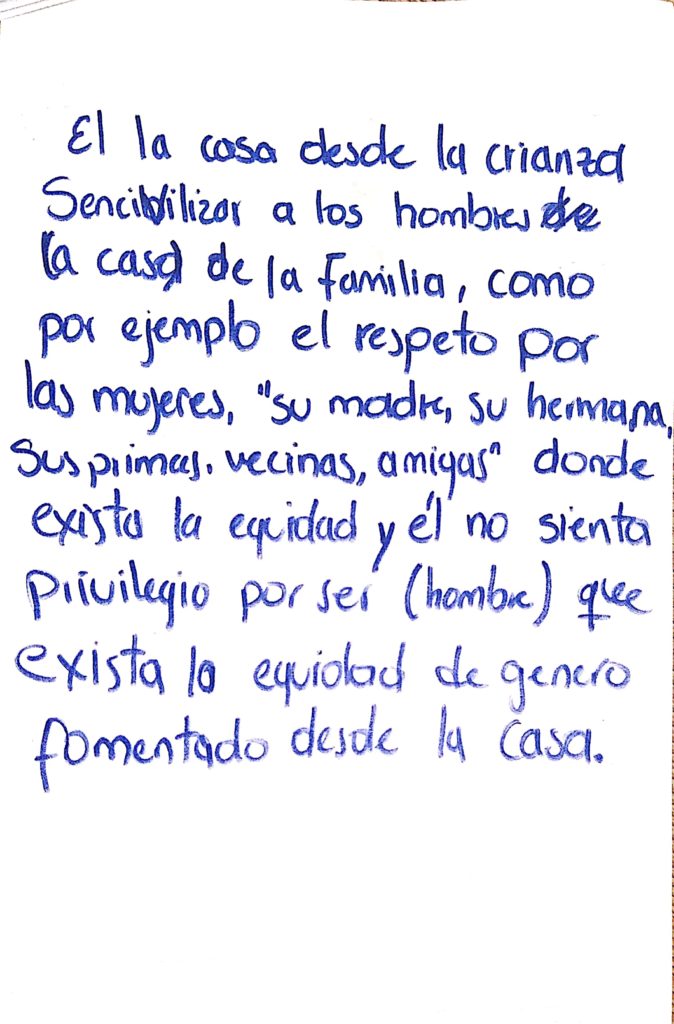 El la casa desde la crianza
Sencibilizar a los hombres de
la casa de la familia, como
por ejemplo el respeto por
las mujeres, "su madre, su hermana,
Sus primas, vecinas, amigas" donde
exista la equidad y él no sienta
privilegio por ser (hombre) que
exista la equidad de genero
fomentado desde la casa.